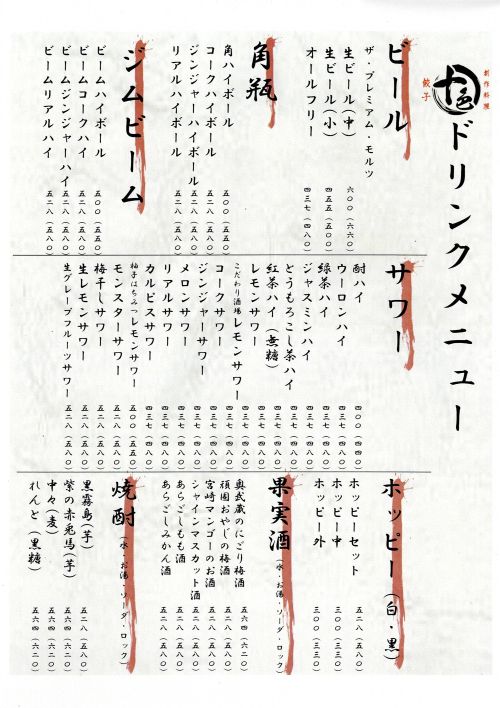 創作料理
餃子
ドリンクメニュー
ビール
ザ・プレミアム・モルツ
生ビール(中) 六〇〇(六六〇)
生ビール(小) 四五五(五〇〇)
オールフリー 四三七(四八〇)
角瓶
角ハイボール 五〇〇(五五〇)
コークハイボール 五二八(五八〇)
ジンジャーハイボール 五二八(五八〇)
リアルハイボール 五二八(五八〇)
ジムビーム
ビームハイボール 五〇〇(五五〇)
ビームコークハイ 五二八(五八〇)
ビームジンジャーハイ 五二八(五八〇)
ビームリアルハイ 五二八(五八〇)
サワー
酎ハイ 四〇〇(四四〇)
ウーロンハイ 四三七(四八〇)
緑茶ハイ 四三七(四八〇)
ジャスミンハイ 四三七(四八〇)
とうもろこし茶ハイ 四三七(四八〇)
紅茶ハイ(無糖) 四三七(四八〇)
レモンサワー 四三七(四八〇)
こだわり酒場レモンサワー 四三七(四八〇)
コークサワー 四三七(四八〇)
ジンジャーサワー 四三七(四八〇)
メロンサワー 四三七(四八〇)
リアルサワー 四三七(四八〇)
カルピスサワー 四三七(四八〇)
柚子はちみつレモンサワー 五〇〇(五五〇)
モンスターサワー 五二八(五八〇)
梅干しサワー 五二八(五八〇)
生レモンサワー 五二八(五八〇)
生グレープフルーツサワー 五二八(五八〇)
ホッピー(白・黒)
ホッピーセット 五二八(五八〇)
ホッピー中 三〇〇(三三〇)
ホッピー外 三〇〇(三三〇)
果実酒(水・お湯・ソーダ・ロック)
奥武蔵のにごり梅酒 五六四(六二〇)
頑固おやじの梅酒 五二八(五八〇)
宮崎マンゴーのお酒 五二八(五八〇)
シャインマスカット酒 五二八(五八〇)
あらごしもも酒 五二八(五八〇)
あらごしみかん酒 五二八(五八〇)
焼酎(水・お湯・ソーダ・ロック)
黒霧島(芋) 五二八(五八〇)
紫の赤兎馬(芋) 五六四(六二〇)
中々(麦) 五六四(六二〇)
れんと(黒糖) 五六四(六二〇)